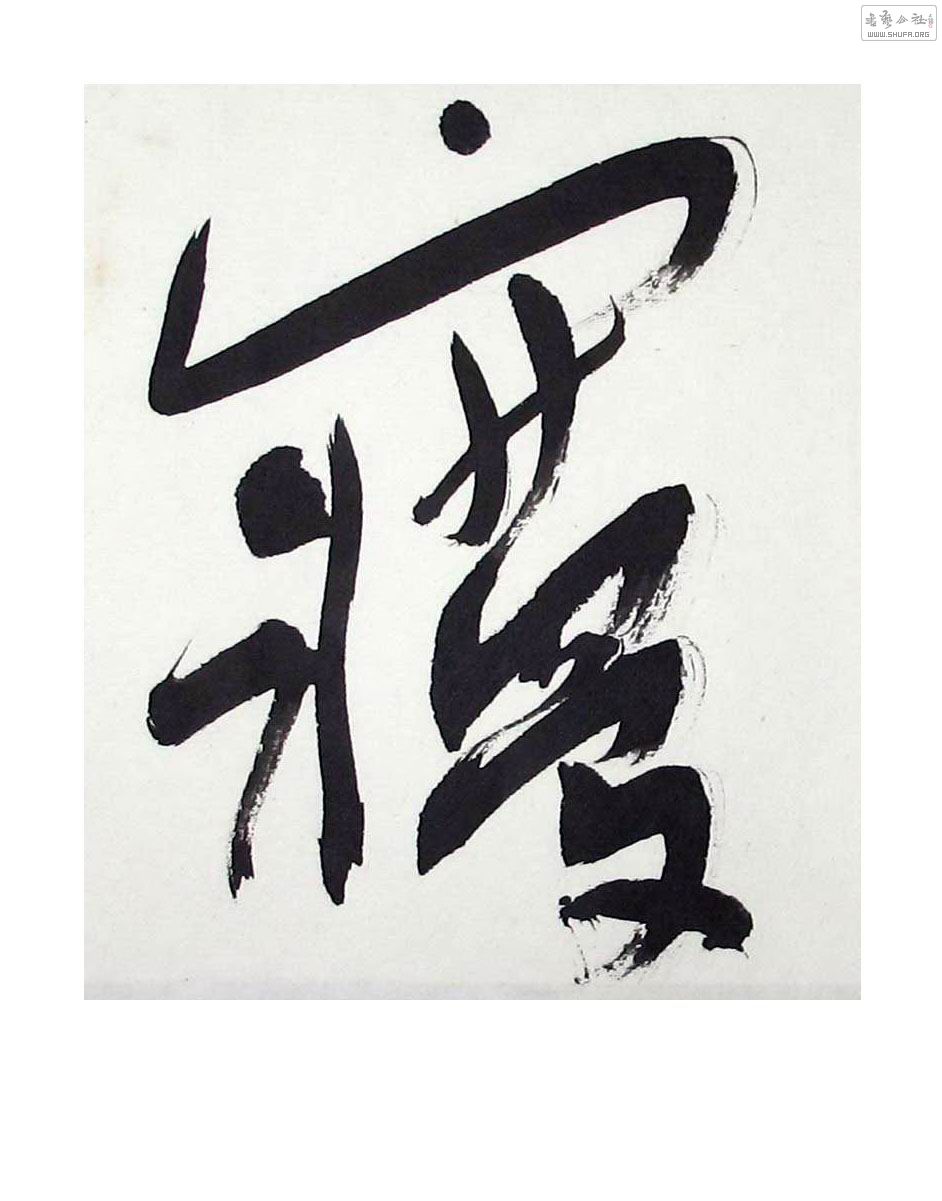 書藝公社
WWW.SHUFA.ORG
㝱